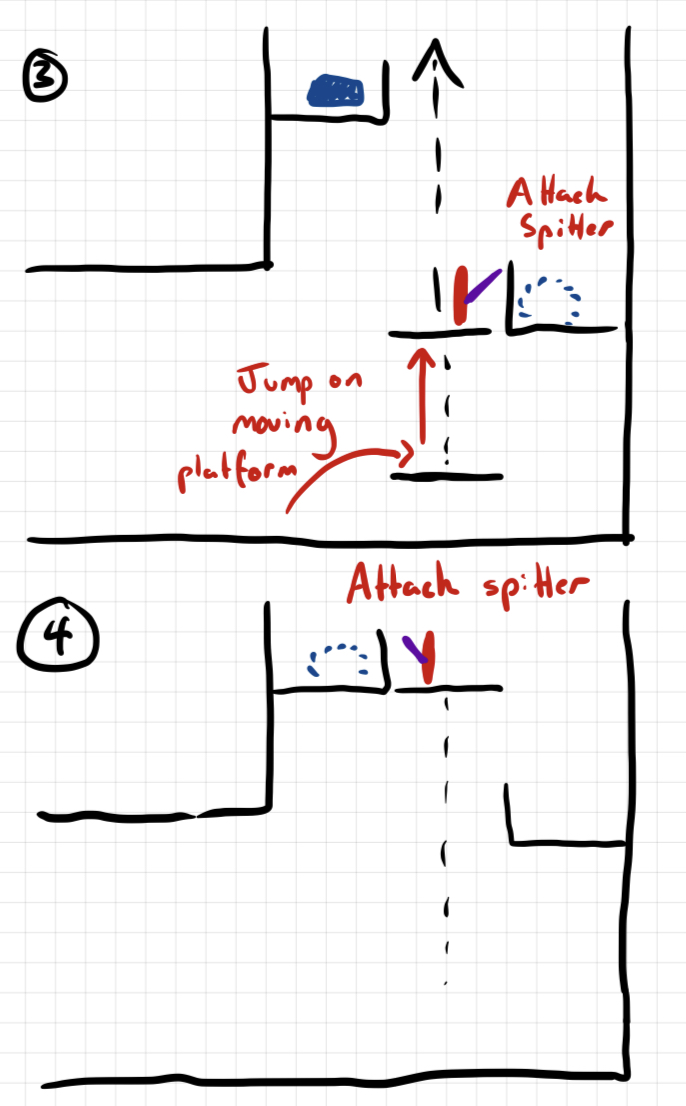 3
Attack
Spitter
Jump on
moving
platform
Attack spitter
4